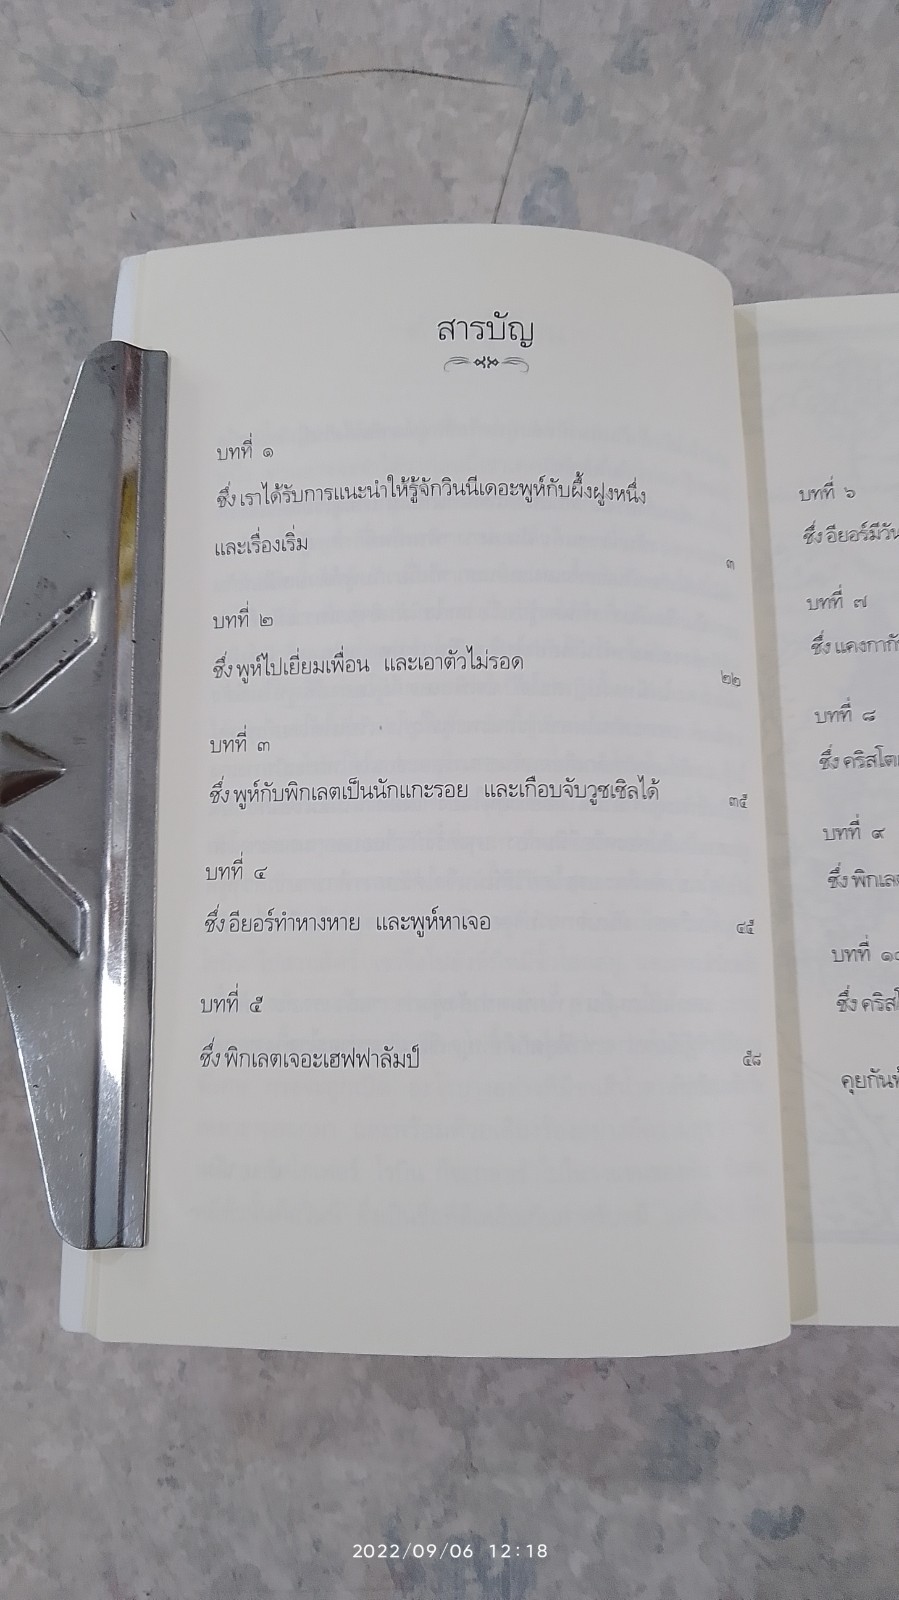 สารบัญ
บทที่ ๑
ซึ่ง เราได้รับการแนะนำให้รู้จักวินนีเดอะพูห์กับผึ้งฝูงหนึ่ง
และเรื่องเริ่ม
๓
บทที่ ๒
ซึ่ง พูห์ไปเยี่ยมเพื่อน และเอาตัวไม่รอด
๒๒
บทที่ ๓
ซึ่ง พูห์กับพิกเลตเป็นนักแกะรอย และเกือบจับวูซเซิลได้
๓๕
บทที่ ๔
ซึ่ง อียอร์ทำหางหาย และพูห์หาเจอ
๔๕
บทที่ ๕
ซึ่ง พิกเลตเจอะเฮฟฟาลัมป์
๕๘
บทที่ ๖
ซึ่ง อียอร์มีวัน
บทที่ ๗
ซึ่ง แคงกา
บทที่ ๘
ซึ่ง คริสโต
บทที่ ๙
ซึ่ง พิกเล
บทที่ ๑๐
ซึ่ง คริส
คุยกัน
2022/09/06 12:18